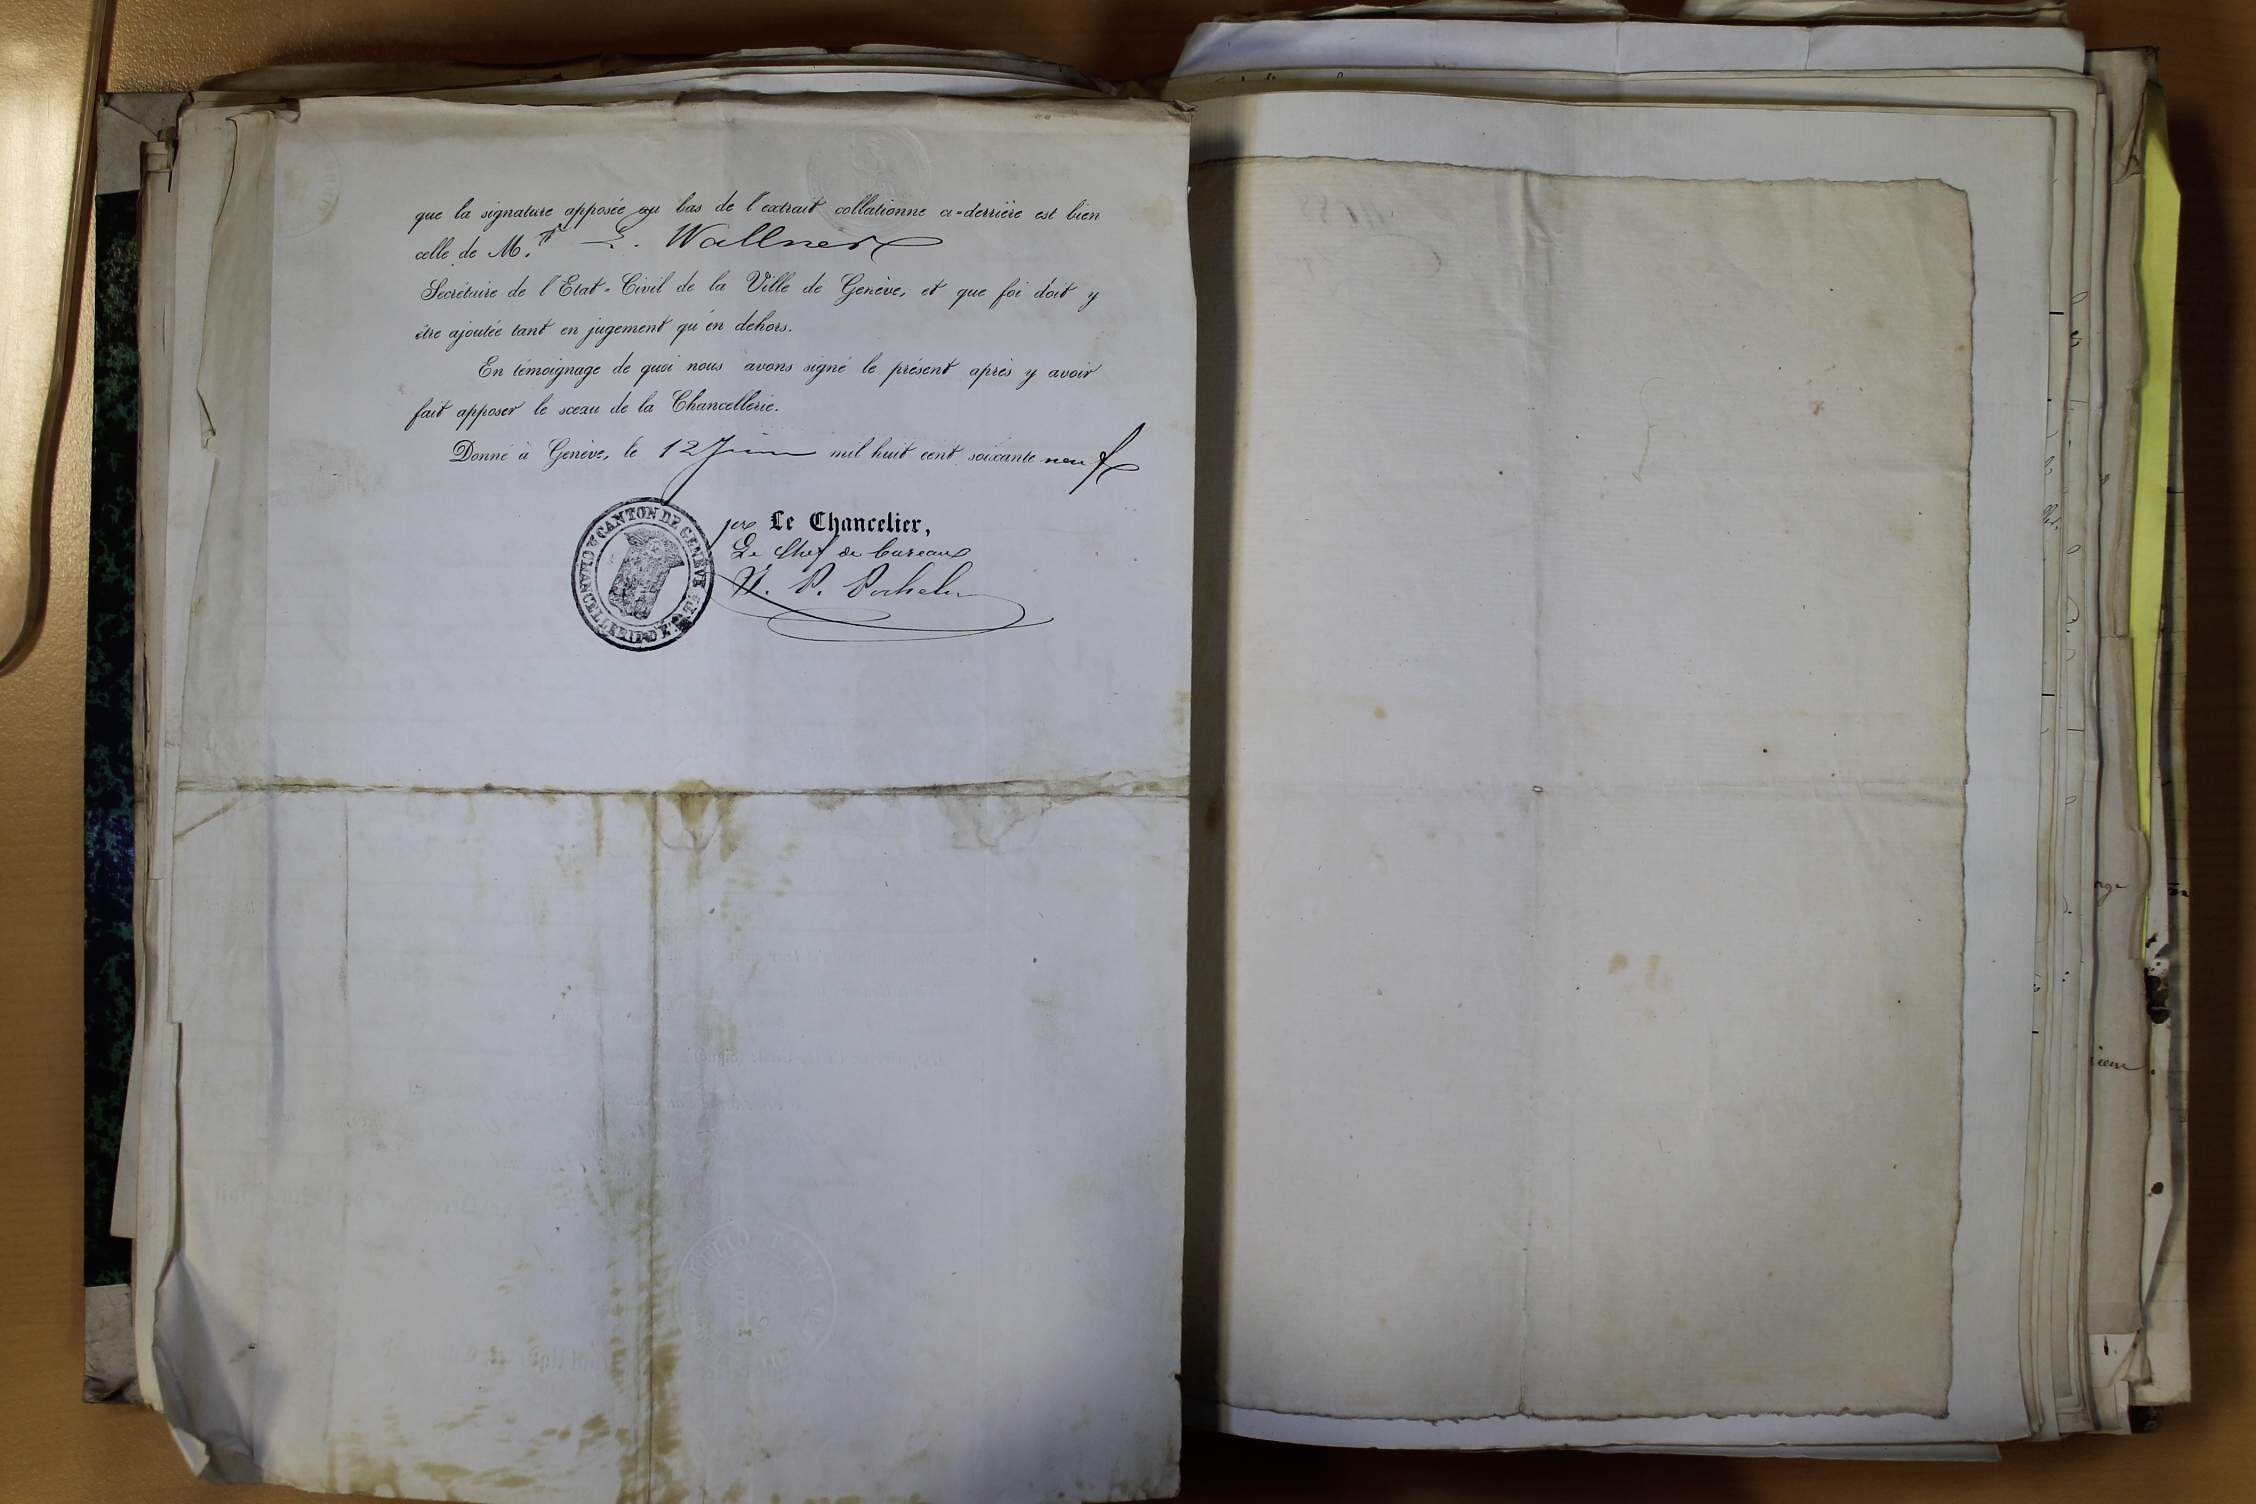 que la signature apposée au bas de l'extrait collationné ci-derrière est bien
celle de M.r L. Wallner
Secrétaire de l'Etat-Civil de la Ville de Genève, et que foi doit y
être ajoutée tant en jugement qu'en dehors.
En témoignage de quoi nous avons signé le présent après y avoir
fait apposer le sceau de la Chancellerie.
Donné à Genève, le 12 Juin mil huit cent soixante neuf
CANTON DE GENEVE
CHANCELLERIE D'ETAT
per Le Chancelier,
Le Chef de bureau